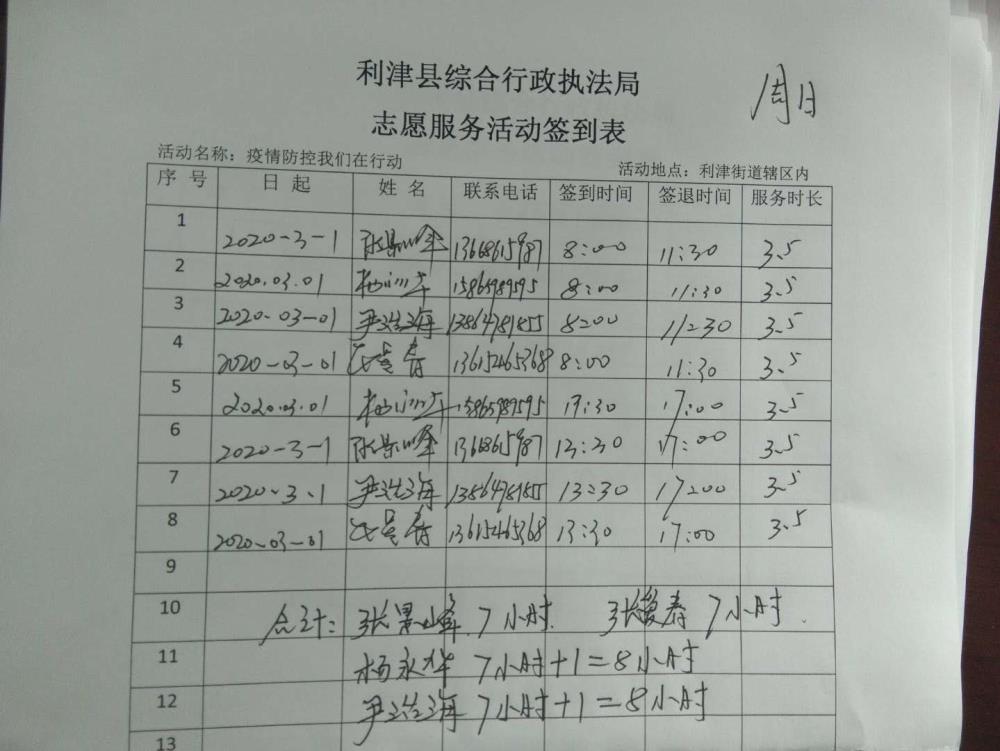 利津县综合行政执法局
周日
志愿服务活动签到表
活动名称：疫情防控我们在行动 活动地点：利津街道辖区内
序 号 日 起 姓 名 联系电话 签到时间 签退时间 服务时长
1 2020-3-1 张景峰 13668615987 8:00 11:30 3.5
2 2020.03.01 杨永华 15865989595 8:00 11:30 3.5
3 2020-03-01 尹浩海 13864781855 8:00 11:30 3.5
4 2020-03-01 13615465368 8:00 11:30 3.5
5 2020.03.01 杨永华 15865989595 13:30 17:00 3.5
6 2020-3-1 张景峰 13668615987 13:30 17:00 3.5
7 2020.3.1 尹浩海 13864781855 13:30 17:00 3.5
8 2020-03-01 13615465368 13:30 17:00 3.5
9
10 合计：张景峰 7小时. 7小时.
11 杨永华 7小时+1=8小时
12 尹浩海 7小时+1=8小时
13